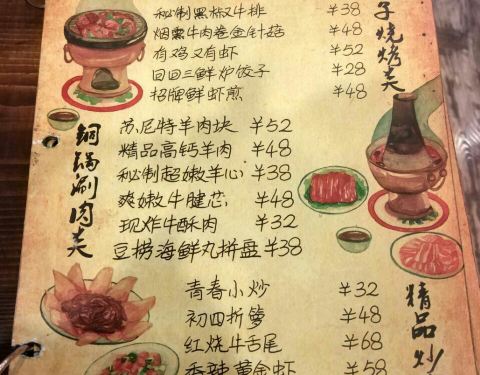 秘制黑椒牛排 ¥38
烟熏牛肉卷金针菇 ¥48
有鸡又有虾 ¥52
回回三鲜炉饺子 ¥28
招牌鲜虾煎 ¥48
子烧烤类
铜锅涮肉类
苏尼特羊肉块 ¥52
精品高钙羊肉 ¥48
秘制超嫩羊心 ¥38
爽嫩牛腱芯 ¥48
现炸牛酥肉 ¥32
豆捞海鲜丸拼盘 ¥38
青春小炒 ¥32
初四折箩 ¥48
红烧牛舌尾 ¥68
香辣黄金虾 ¥58
精品炒